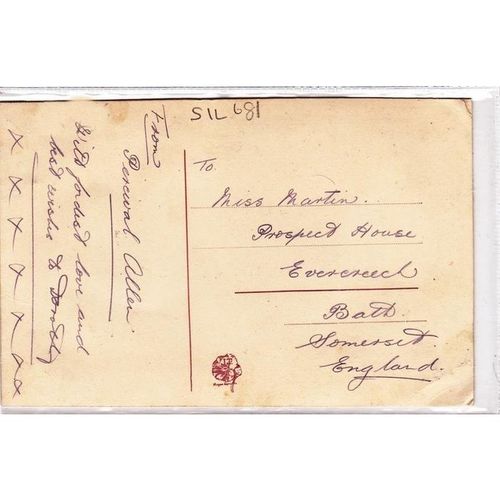 SIL 681
From
Percival Allen
With fondest love and
best wishes to Dorothy
x x x x x x x x
To
Miss Martin.
Prospect House
Evercreech
Bath.
Somerset.
England.